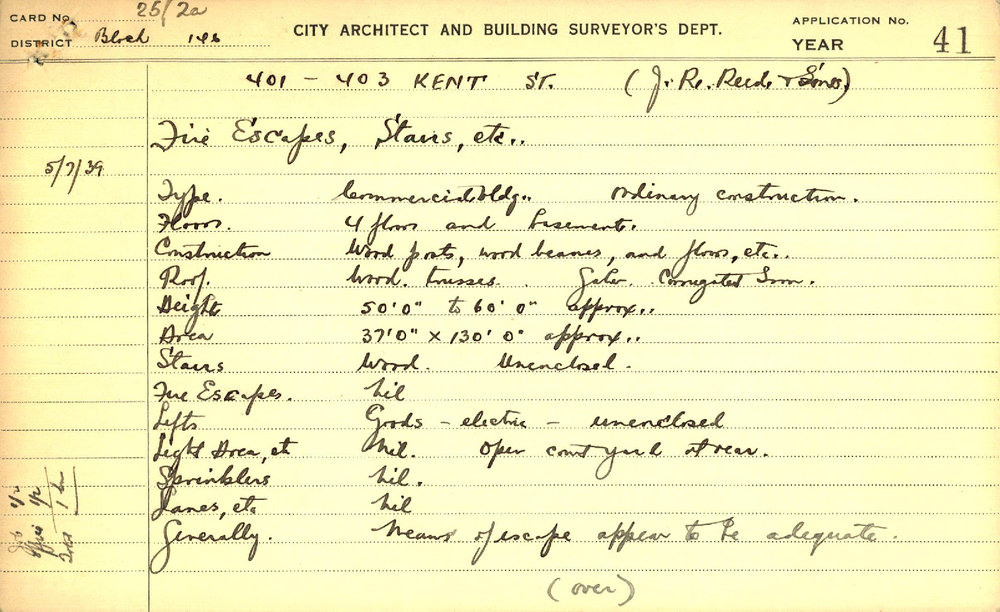 CARD No. 25/2a CITY ARCHITECT AND BUILDING SURVEYOR'S DEPT. APPLICATION No.
DISTRICT Block 146 YEAR 41
401 - 403 KENT ST. (J. R. & Sons)
Fire Escapes, Stairs, etc..
5/7/39
Type. Commercial bldg.. Ordinary construction.
Floors. 4 floors and basement.
Construction Wood posts, wood beams, and floors, etc..
Roof. Wood trusses. Galv. Corrugated Iron.
Height 50'0" to 60'0" approx..
Area 37'0" x 130'0" approx..
Stairs Wood. Unenclosed.
Fire Escapes. Nil
Lifts Goods - electric - unenclosed
Light Area, etc Nil. Open court yard at rear.
Sprinklers Nil.
Lanes, etc Nil
Generally. Means of escape appear to be adequate.
(over)